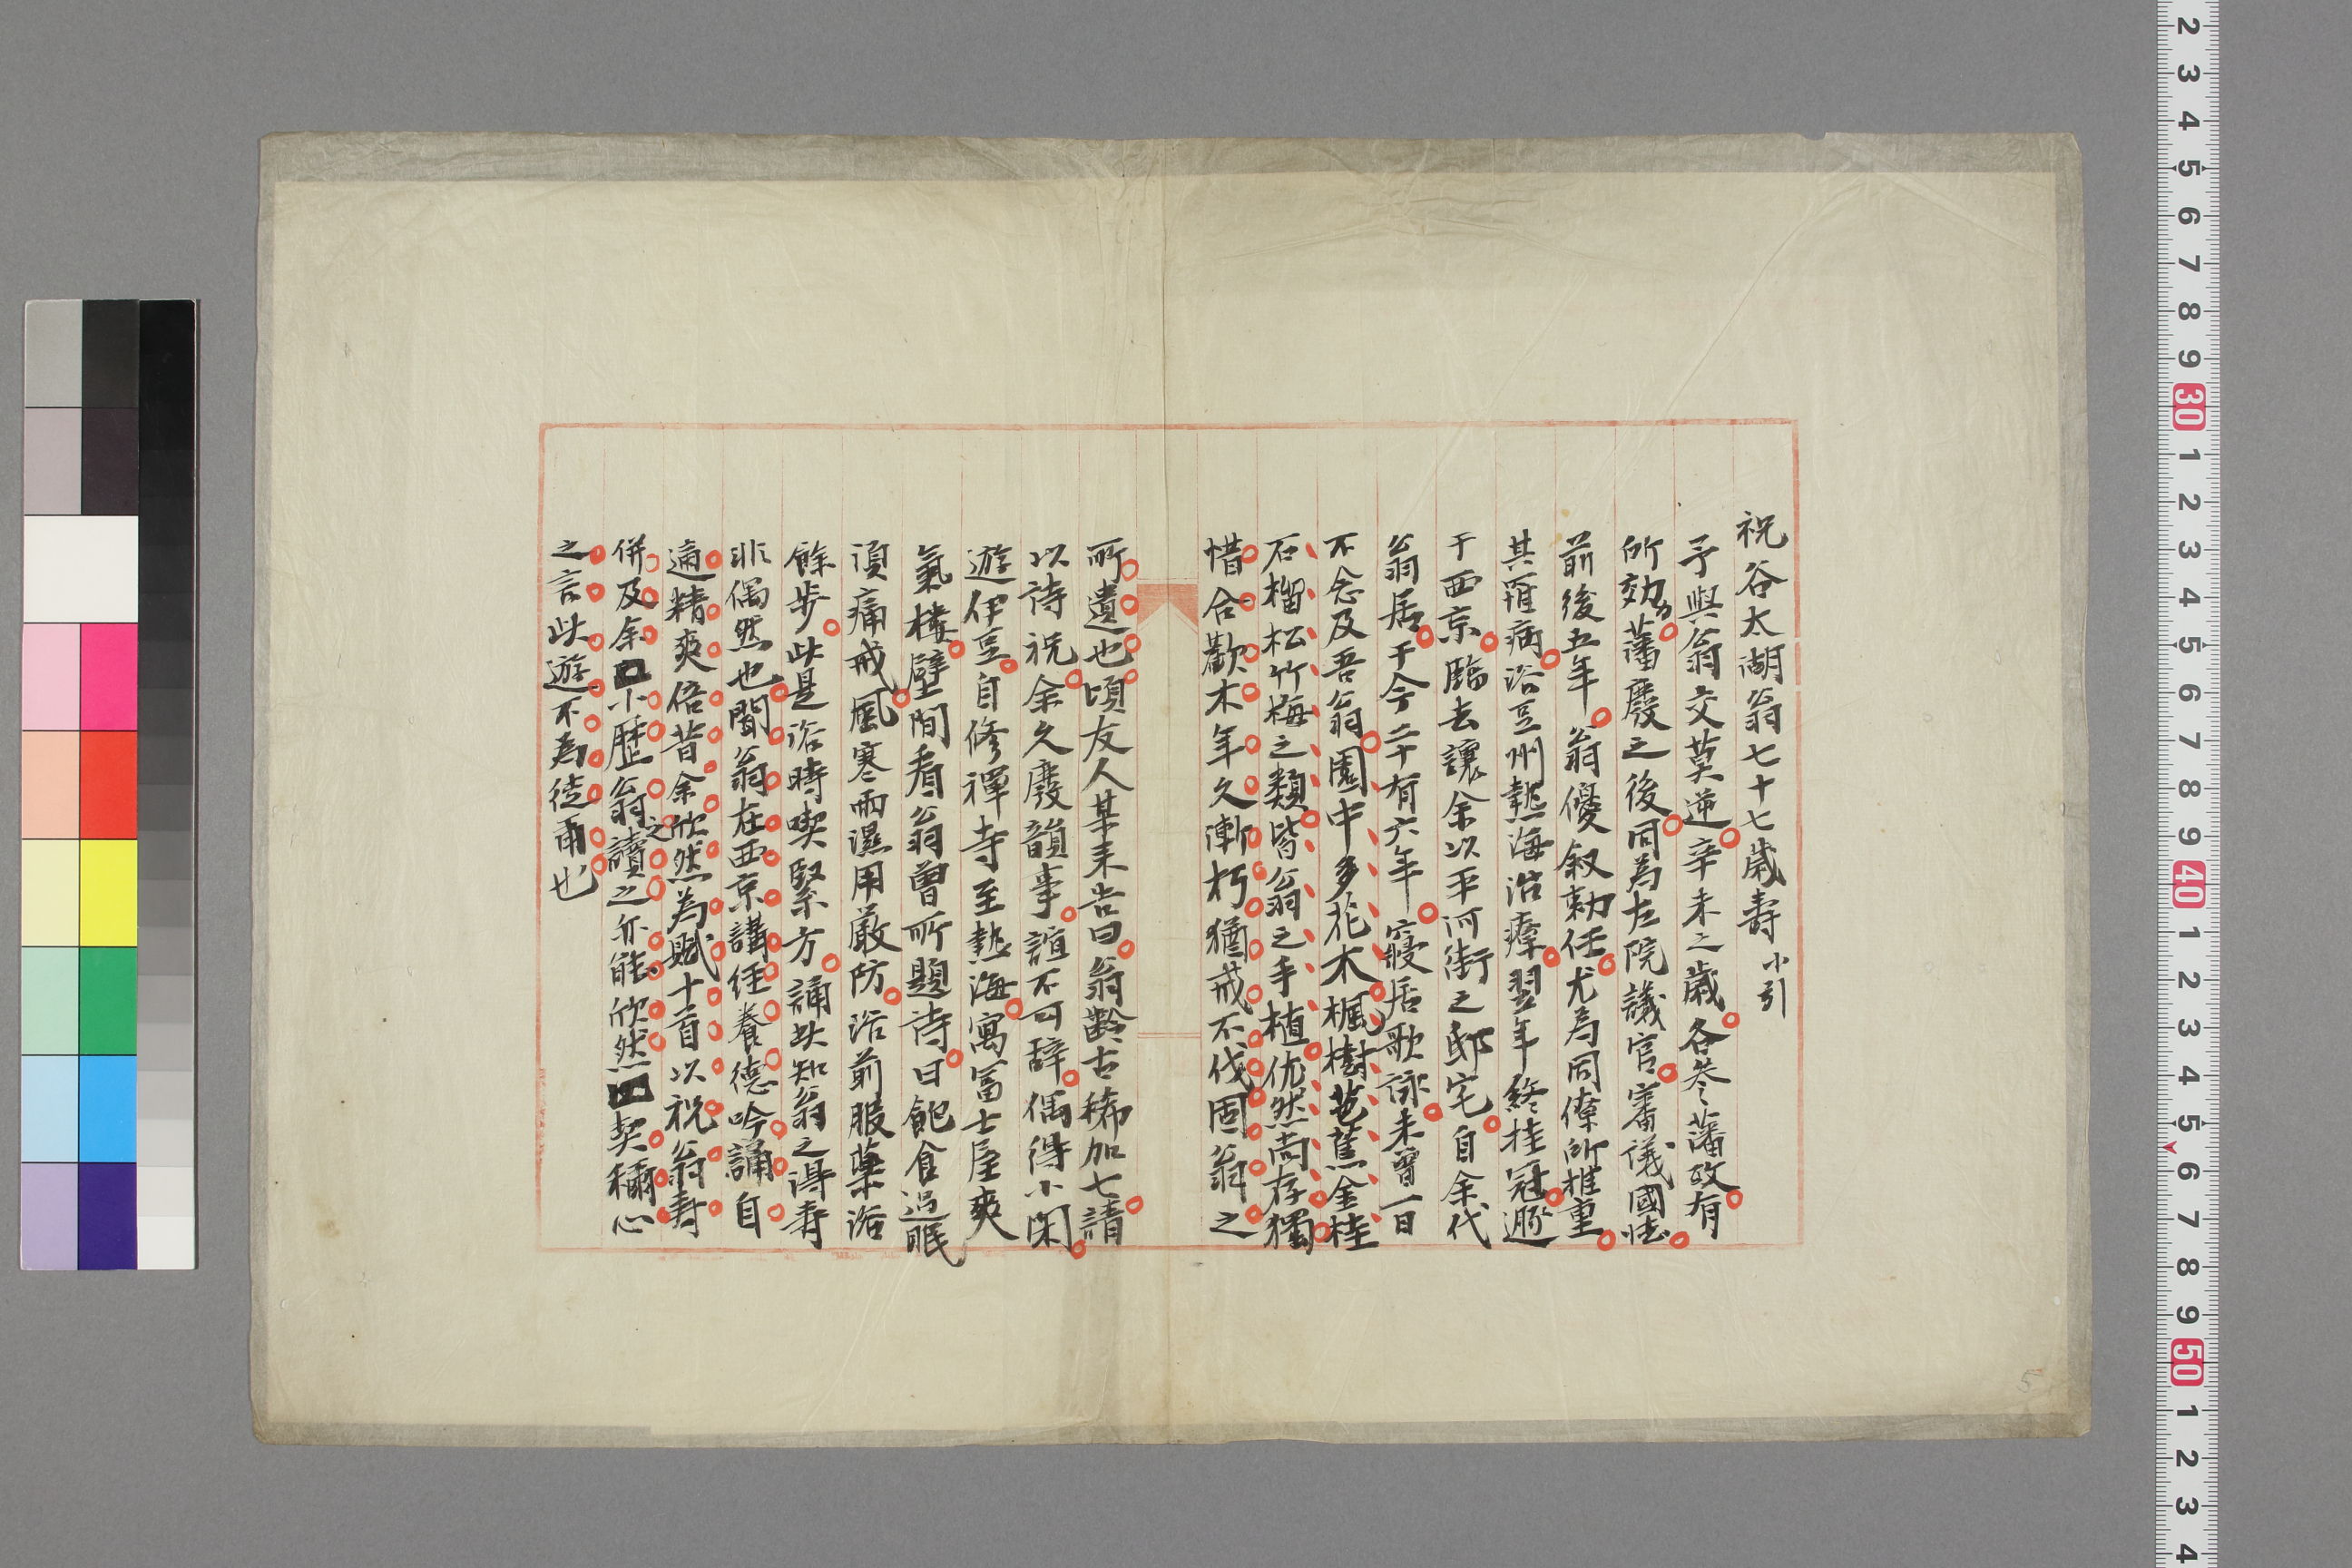 祝谷太湖翁七十七歲壽 小引
予與翁交莫逆辛未之歲各叅藩政有
所効力藩廢之後同為左院議官審儀國憲
前後五年翁優叙勅任尤為同僚所推重
其罹病浴豆州熱海治療翌年終桂冠遯
于西京臨去讓余以平河街之邸宅自余代
翁居于今二十有六年寢居歌詠未曾一日
不念及吾翁園中多花木楓樹芭蕉金桂
石榴松竹梅之類皆翁之手植依然尚存獨
惜合歡木年久漸朽猶戒不伐固翁之
所遺也頃友人某来告曰翁齡古稀加七請
以詩祝余久廢韻事誼不可辞偶得小閑
遊伊豆自修禪寺至熱海寓冨士屋爽
氣樓壁間看翁曽所題詩曰飽食過眠
須痛戒風寒雨濕用嚴防浴前服藥浴
餘步此是浴時喫緊方誦此知翁之得壽
非偶然也聞翁在西京講経養德吟誦自
適精爽倍昔余欣然為賦十首以祝翁壽
併及余小歷翁讀之亦能欣然契稱心
之言此遊不為徒爾也
之
2 3 4 5 6 7 8 9 30 1 2 3 4 5 6 7 8 9 40 1 2 3 4 5 6 7 8 9 50 1 2 3 4
5